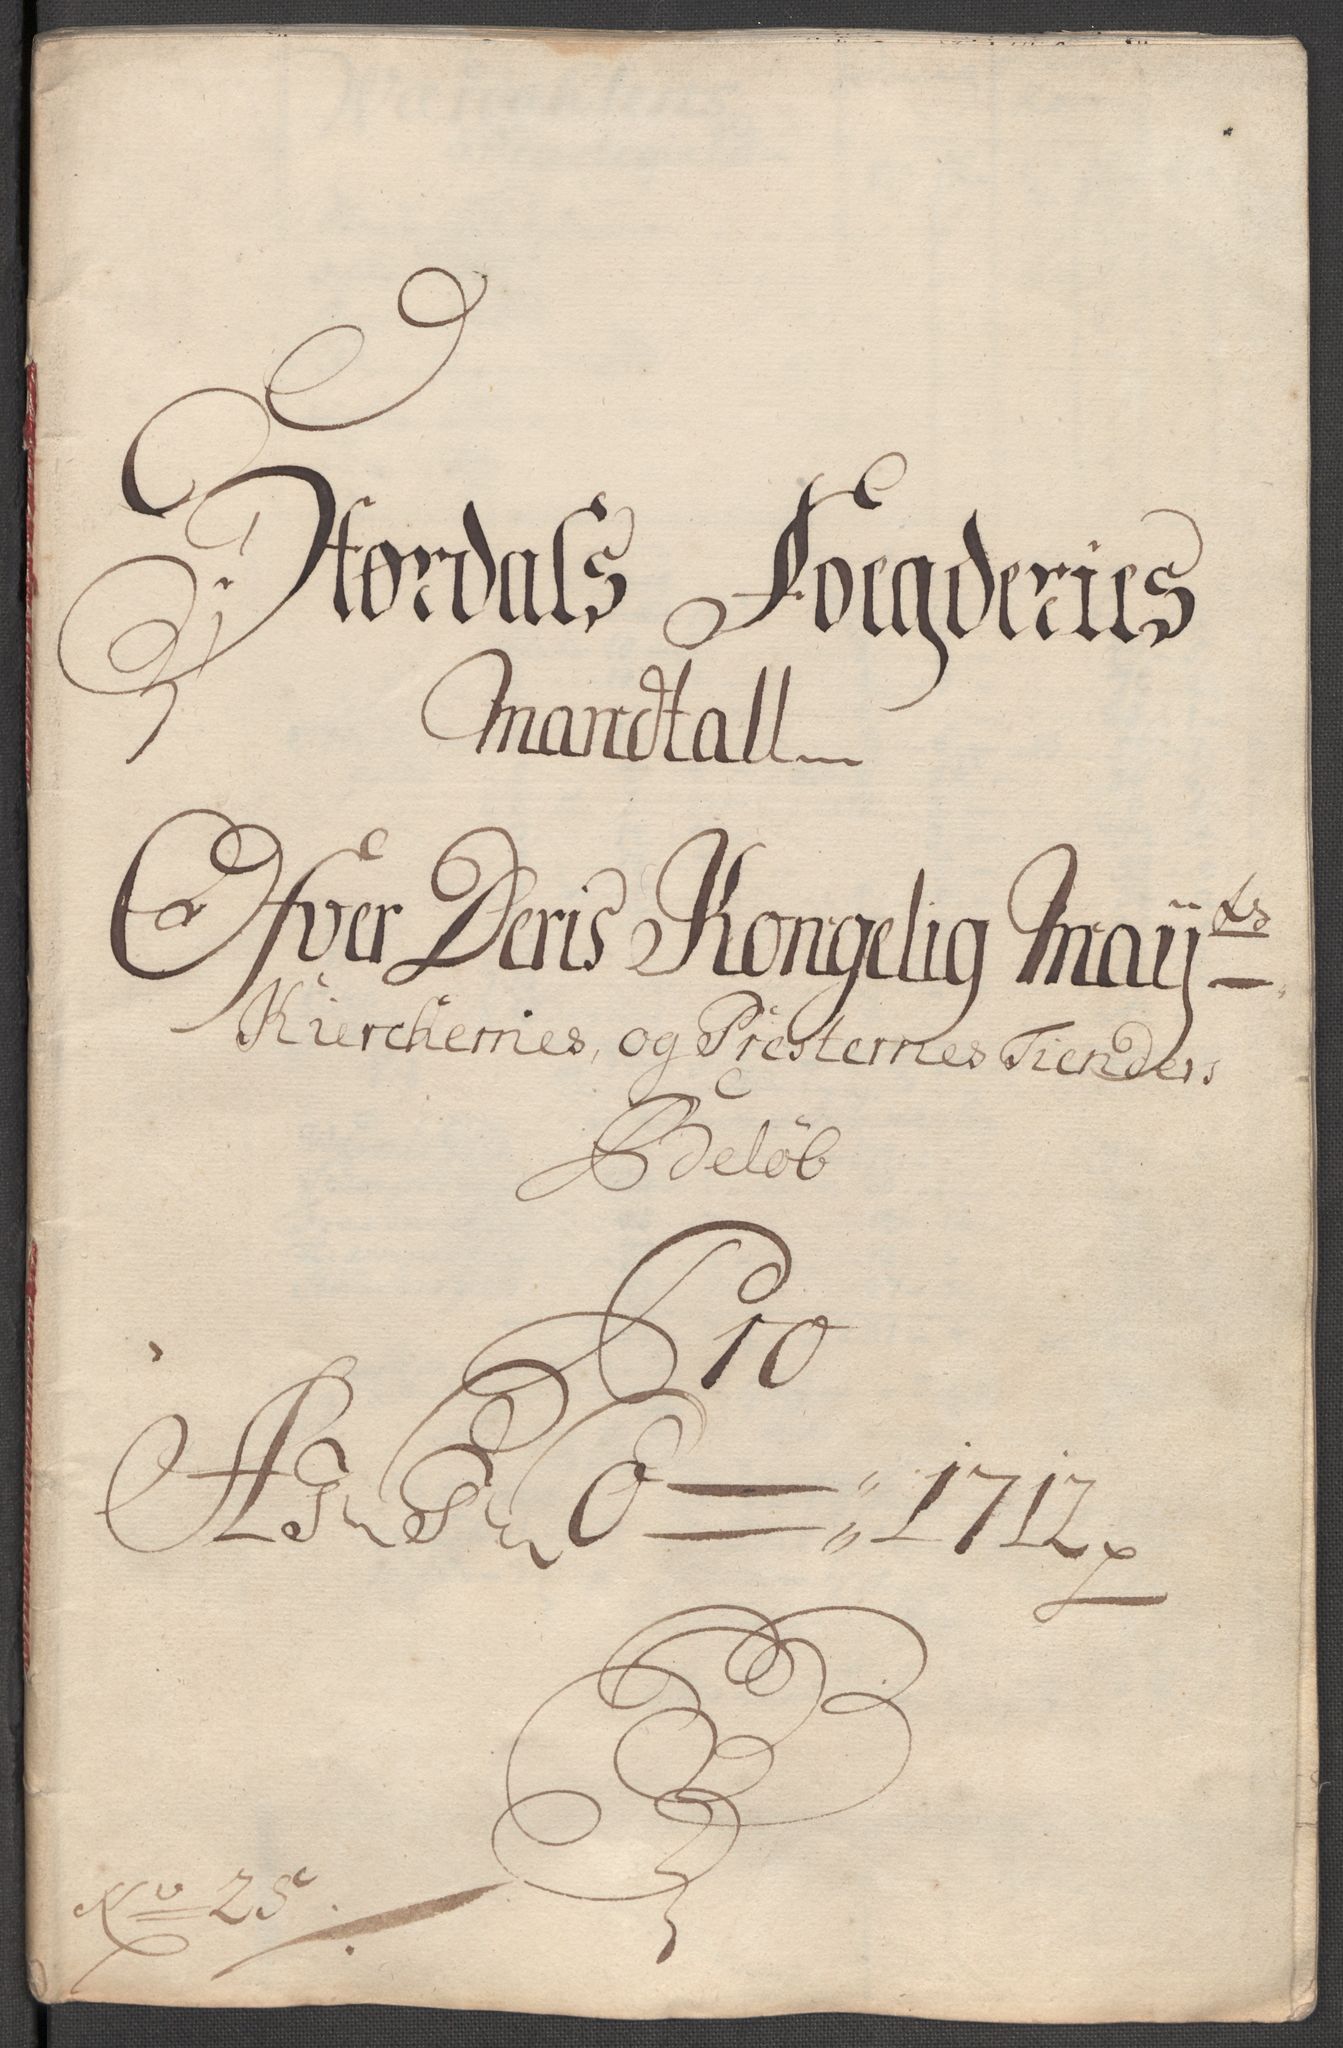 Størdals Foegderies
Mandtall
Ofver Deris Kongelig Maÿts
Kierchernes, og Presternes Tienders
Beløb
Pro
ASSO 1712
No 25